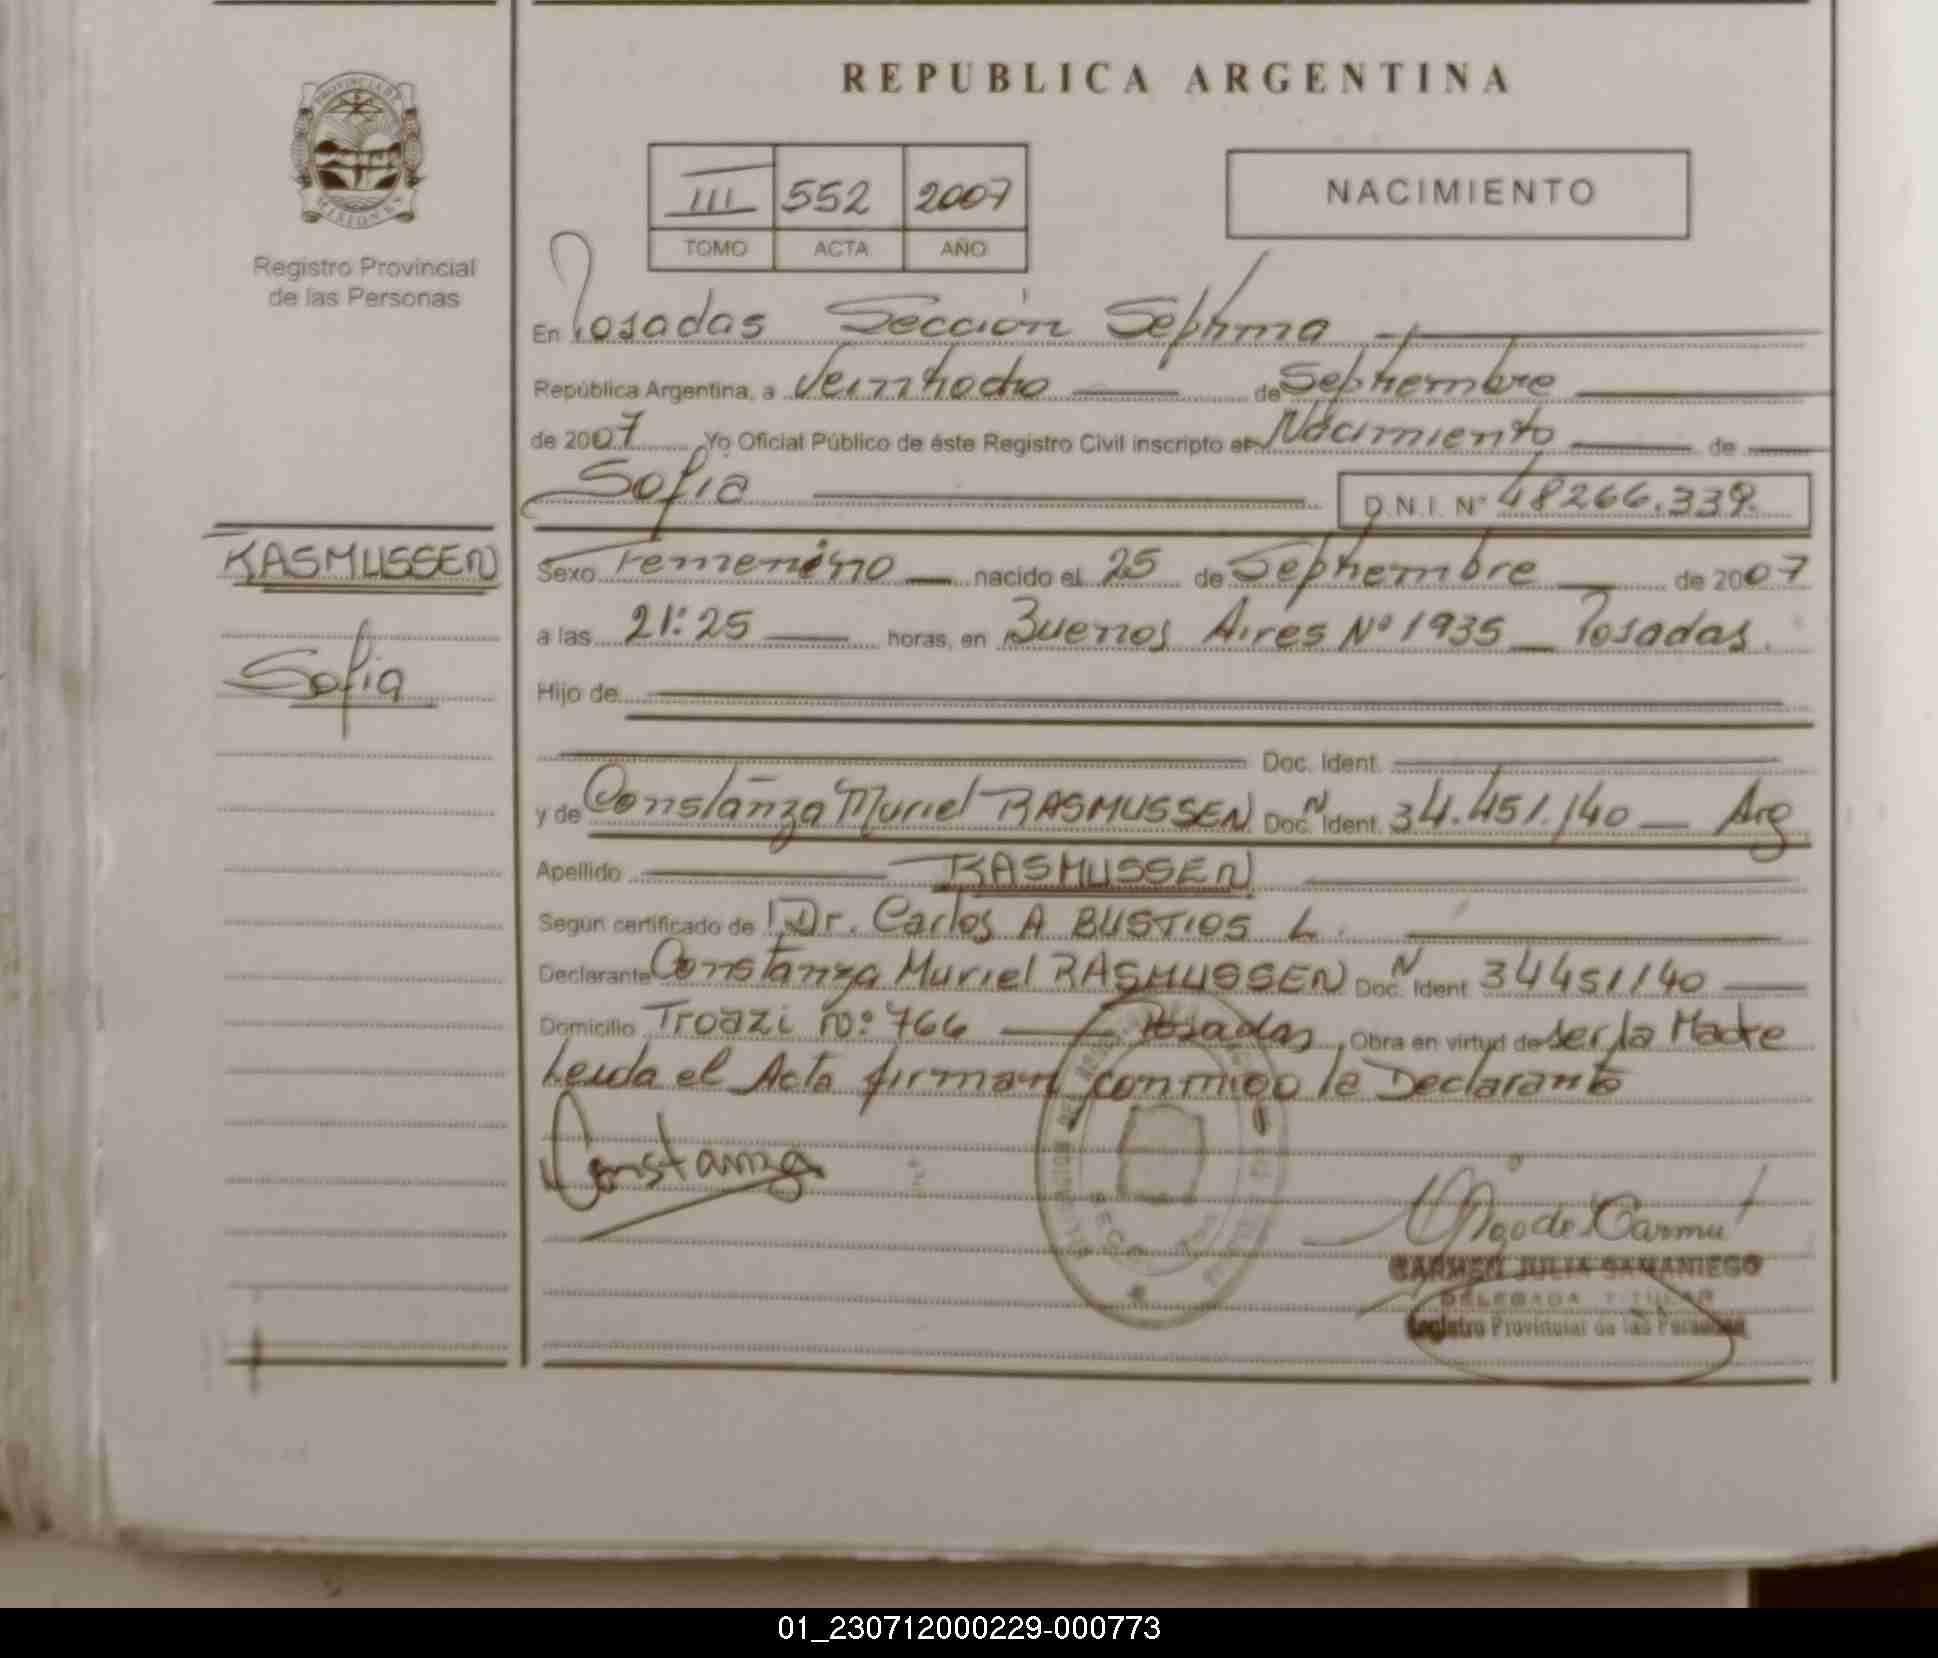 REPUBLICA ARGENTINA
PROVINCIA DE
MISIONES
Registro Provincial
de las Personas
III 552 2007
TOMO ACTA AÑO
NACIMIENTO
En Posadas Sección Septima
República Argentina, a Veintiocho de Septiembre
de 2007 Yo Oficial Público de éste Registro Civil inscripto el Nacimiento de
Sofia D.N.I. N° 48266.339.
RASMUSSEN
Sofia
Sexo Femenino nacido el 25 de Septiembre de 2007
a las 21:25 horas, en Buenos Aires N° 1935 _ Posadas.
Hijo de
Doc. Ident.
y de Constanza Muriel RASMUSSEN Doc. N Ident. 34.451.140 _ Arg
Apellido RASMUSSEN
Según certificado de Dr. Carlos A BUSTIOS L.
Declarante Constanza Muriel RASMUSSEN Doc. N Ident 34451140
Domicilio Troazi no: 766 Posadas, Obra en virtud de ser la Madre
Leida el Acta firman conmigo la Declarante
Constanza
CARMEN JULIA SAMANIEGO
DELEGADA TITULAR
Registro Provincial de las Personas
01_230712000229-000773